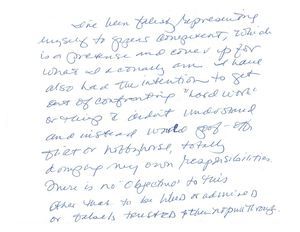 I've been falsely representing
myself to appear competent, which
is a pretense and cover up for
what I actually am. I have
also had the intention to get
out of confronting "hard work"
or things I didn't understand
and instead would goof-off
flirt or hobbyhorse, totally
dumping my own responsibilities.
There is no "objective" to this
other than to be liked or admired
or falsely trusted then not pull through.